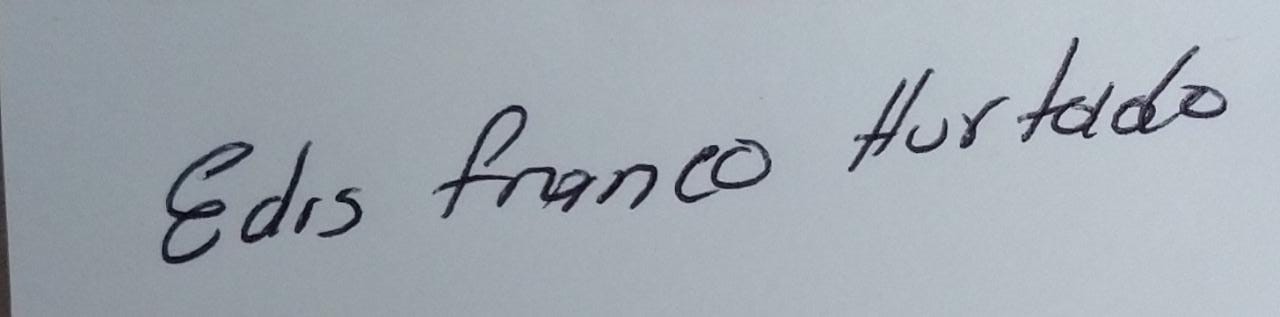 Edis franco Hurtado